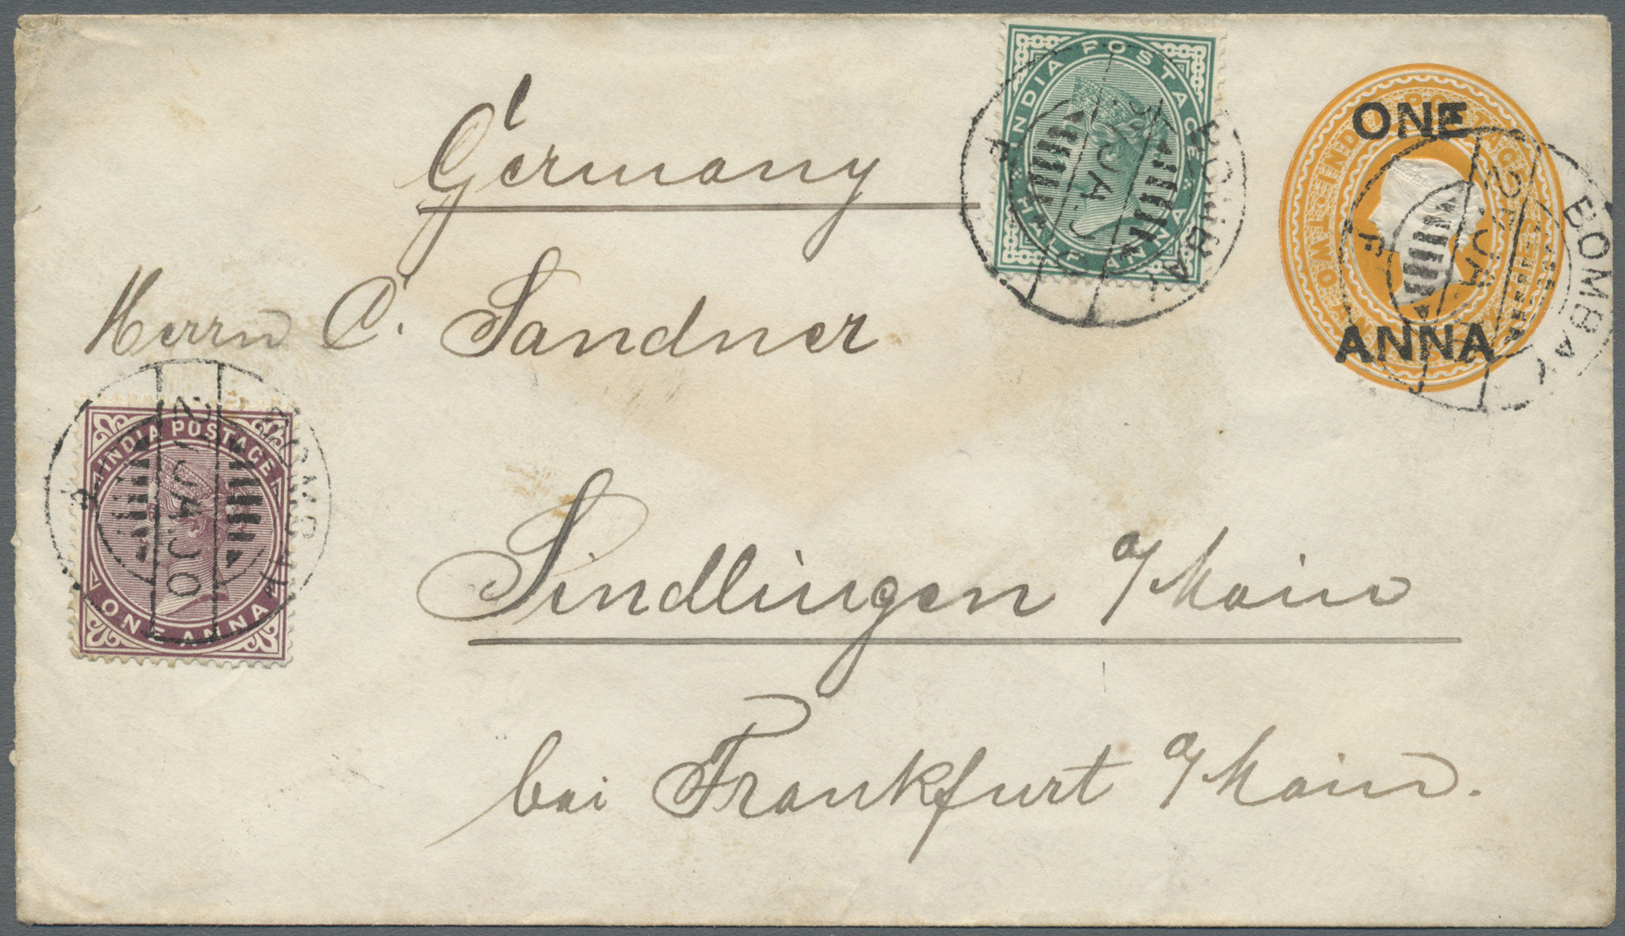 Germany
INDIA POSTAGE
HALF ANNA
BOMBAY
F
ONE
ANNA
BOMBAY
F
Herrn C. Sandner
INDIA POSTAGE
ONE ANNA
Sindlingen a/Main
bei Frankfurt a/Main.